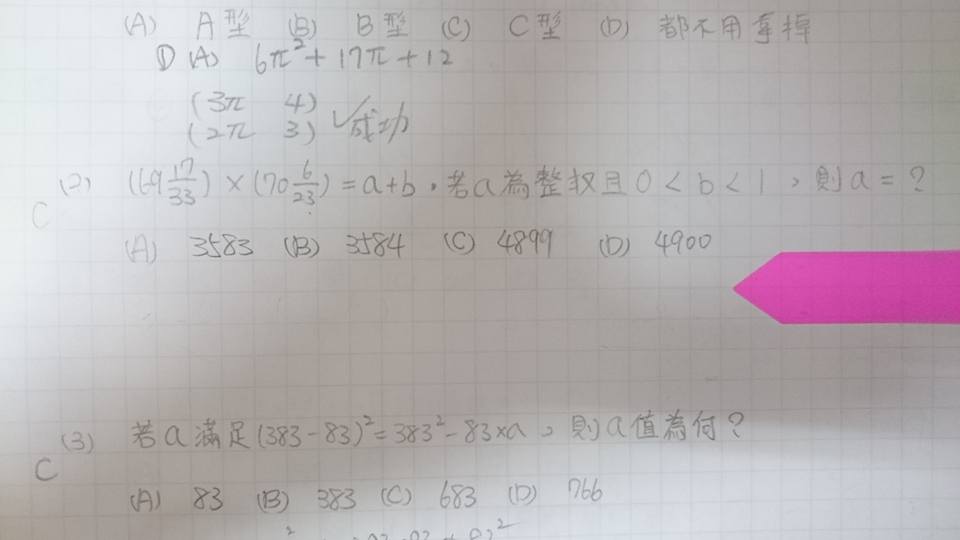 (A) A型 (B) B型 (C) C型 (D) 都不用拿掉
① (A) 6π²+17π+12
(3π 4)
(2π 3) ✓成功
(2) (69 17/33) × (70 6/23) = a+b,若a為整数且 0 < b < 1,則a = ?
C
(A) 3583 (B) 3584 (C) 4899 (D) 4900
(3) 若a滿足(383-83)²=383²-83×a,則a值為何?
C
(A) 83 (B) 383 (C) 683 (D) 766